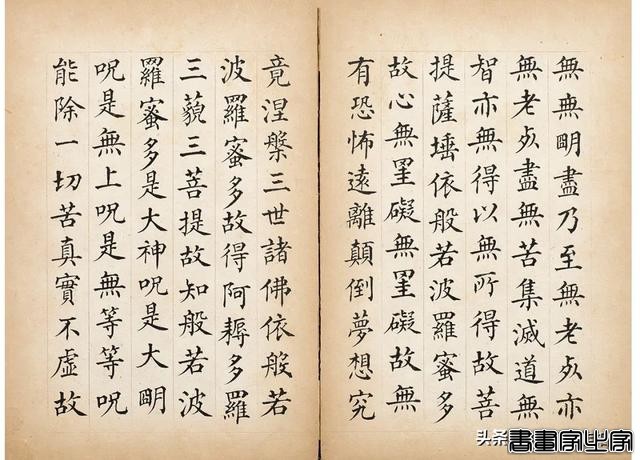 無無明盡乃至無老死亦
無老死盡無苦集滅道無
智亦無得以無所得故菩
提薩埵依般若波羅蜜多
故心無罣礙無罣礙故無
有恐怖遠離顛倒夢想究
竟涅槃三世諸佛依般若
波羅蜜多故得阿耨多羅
三藐三菩提故知般若波
羅蜜多是大神呪是大明
呪是無上呪是無等等呪
能除一切苦真實不虛故
頭条
書畫家必字